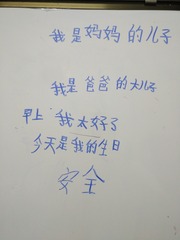 我是妈妈的儿子
我是爸爸的大儿子
早上 我太好了
今天是我的生日
安全